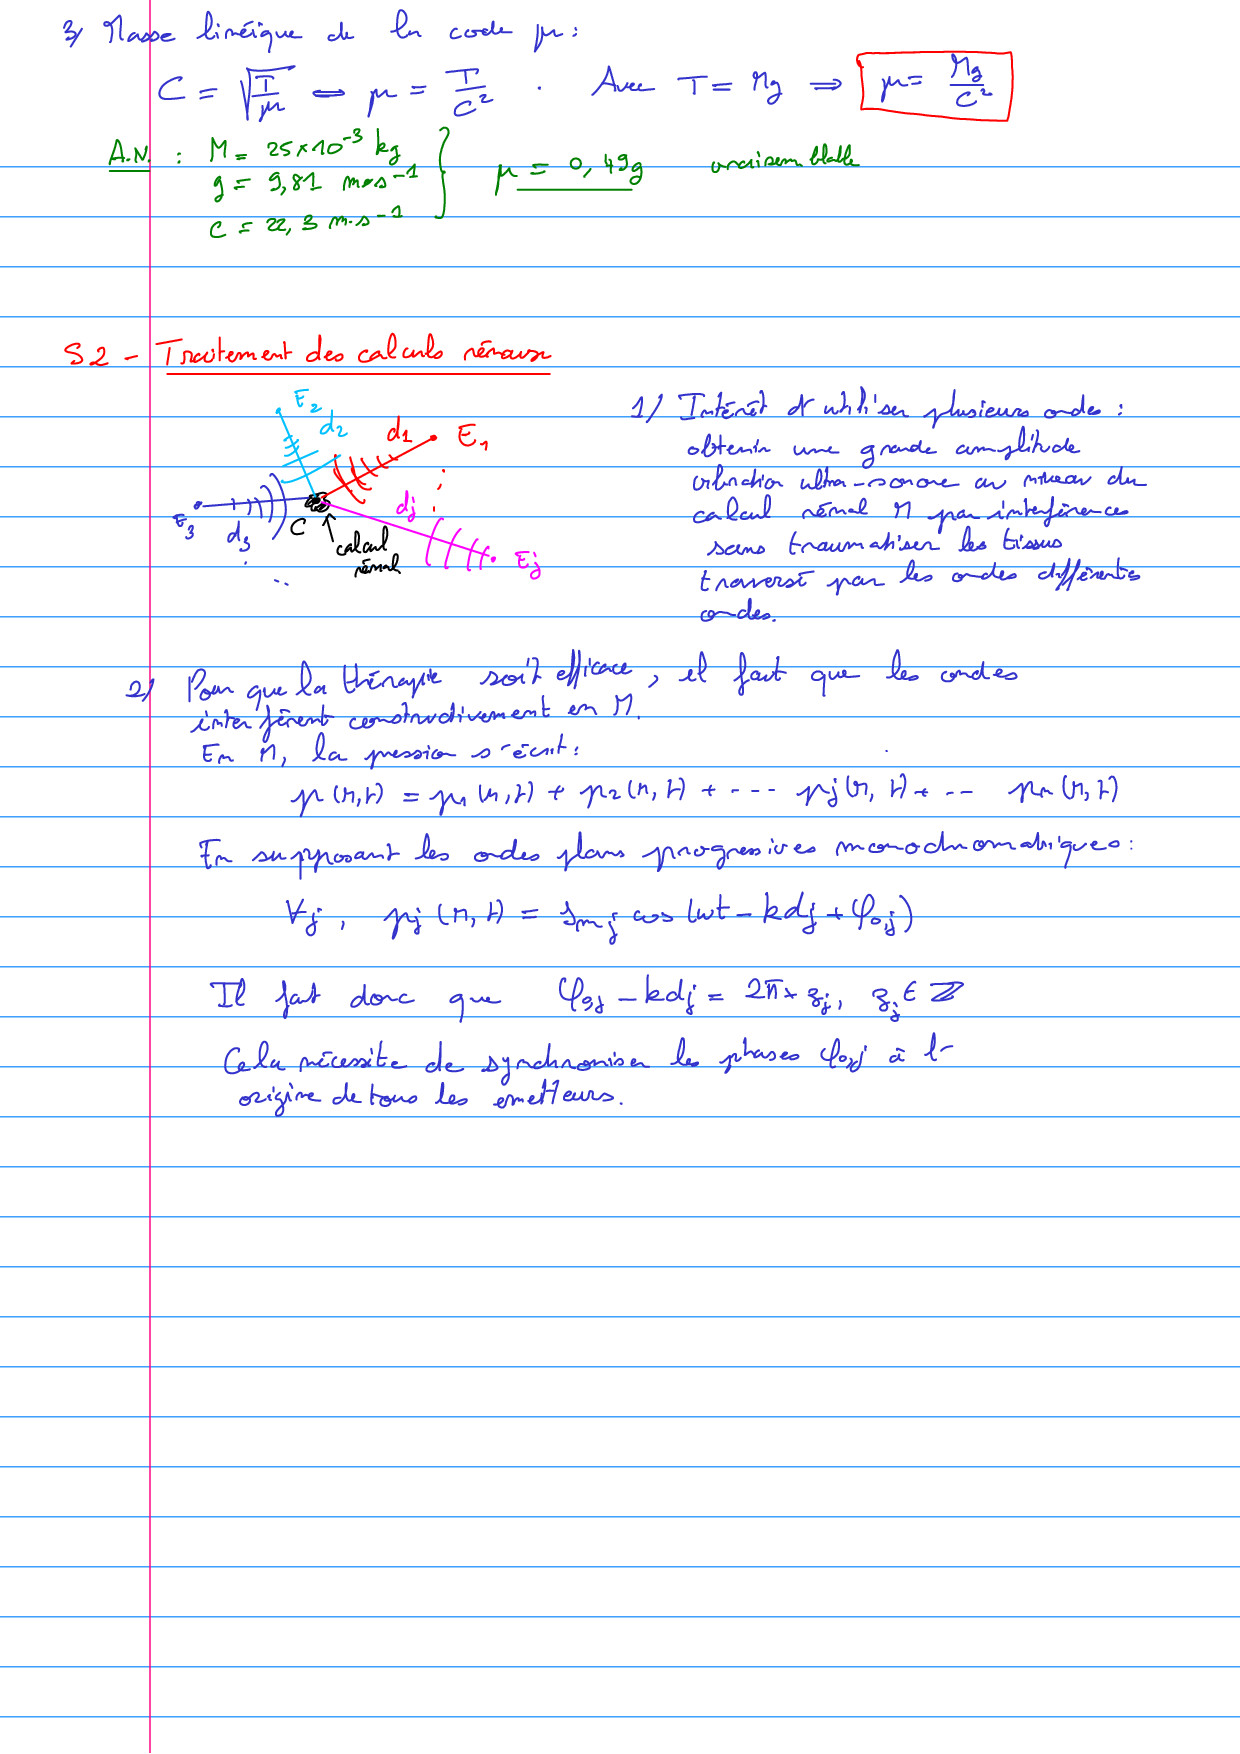 3/ Masse linéique de la corde μ :
C = √(T/μ) ⇔ μ = T/C² . Avec T = Mg ⇒ μ = Mg/C²
A.N. : M = 25×10⁻³ kg
g = 9,81 m·s⁻¹
C = 22,3 m·s⁻¹
μ = 0,49g vraisemblable
S2 - Traitement des calculs rénaux
E₂
d₂
d₁ E₁
E₃ d₃
C
calcul
rénal
dj
Ej
1/ Intérêt d'utiliser plusieurs ondes :
obtenir une grande amplitude
vibration ultra-sonore au niveau du
calcul rénal M par interférences
sans traumatiser les tissus
traversé par les ondes différentes
ondes.
2/ Pour que la thérapie soit efficace, il faut que les ondes
interfèrent constructivement en M.
En M, la pression s'écrit :
p(M,t) = p₁(M,t) + p₂(M,t) + ---- pj(M,t) + -- pn(M,t)
En supposant les ondes plans progressives monochromatiques :
∀j, pj(M,t) = smj cos(ωt - kdj + φ0,j)
Il faut donc que φ0,j - kdj = 2π × zj, zj ∈ ℤ
Cela nécessite de synchroniser les phases φ0,j à l'
origine de tous les émetteurs.